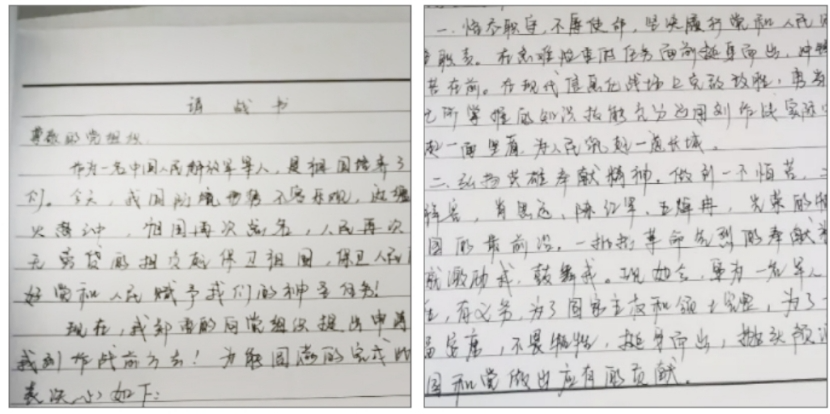 请战书
尊敬的党组织
作为一名中国人民解放军军人，是祖国培养了
们。今天，我国的境世势不容乐观，
火，祖国再次点名，人民再次
无旁贷的担负起保卫祖国，保卫人民
好党和人民赋予我们的神圣任务！
现在，我郑重的向党组织提出申请
我到作战前方去！为能圆满的完成
表决心如下：
一、恪尽职守，不辱使命，坚决履行党和人民
职责。在急难险重的任务面前挺身而出，冲锋
苦在前。在现代信息化战场上克敌致胜，
己所学的知识技能充分运用到作战实际
起一面坚盾，为人民筑起一道长城。
二、弘扬英雄奉献精神。做到一不怕苦，二
祥榕，肖思远、陈红军、王焯冉，
国的最前沿。一批批革命先烈的奉献
激励我，鼓舞我。现如今，身为一名军人
任，有义务，为了国家主权和领土完整，为了
不畏牺牲，挺身而出，抛头颅
国和党做出应有的贡献。